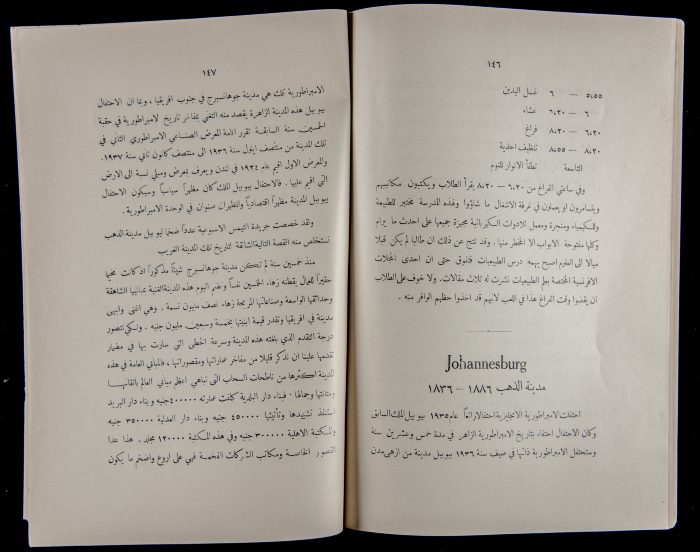 ١٤٦
٥٫٥٥ — ٦ غسل اليدين
٦ — ٦٫٢٠ عشاء
٦٫٢٠ — ٨٫٢٠ فراغ
٨٫٢٠ — ٨٫٥٥ تنظيف احذية
التاسعة تطفأ الانوار للنوم
وفي ساعتي الفراغ من ٦٫٢٠ — ٨٫٢٠ يقرأ الطلاب ويكتبون مكاتيبهم
ويتسامرون او يعملون في غرفة الاشغال ما شاؤوا ولهذه المدرسة مختبر للطبيعة
وللكيمياء ومنجرة ومعمل للادوات الكهربائية مجهزة جميعها على احدث ما يرام
وكلها مفتوحة الابواب الا المخطر منها. وقد نتج عن ذلك ان طالبا لم يكن قبلا
ميالا الى العلوم اصبح يهمه درس الطبيعيات فتفوق حتى ان احدى المجلات
الافرنسية المختصة بعلم الطبيعيات نشرت له ثلاث مقالات. ولا خوف على الطلاب
ان يقضوا وقت الفراغ هذا في اللعب لانهم قد اخذوا حظهم الوافر منه .
Johannesburg
مدينة الذهب ١٨٨٦ — ١٨٣٦
احتفلت الامبراطورية الانجليزية احتفالا رائعاً عام ١٩٣٥ بيوبيل الملك السابق
وكان الاحتفال احتفاء بتاريخ الامبراطورية الزاهر في مدة خمس وعشرين سنة
وستحتفل الامبراطورية ذاتها في صيف سنة ١٩٣٦ بيوبيل مدينة من ازهى مدن
١٤٧
الامبراطورية تلك هي مدينة جوهانسبرج في جنوب افريقيا ، وبما ان الاحتفال
بيوبيل هذه المدينة الزاهرة يقصد منه التغني بمفاخر تاريخ لامبراطورية في حقبة
الخمسين سنة السابقة تقرر اقامة المعرض الصناعي الامبراطوري الثاني في
تلك المدينة من منتصف ايلول سنة ١٩٣٦ الى منتصف كانون ثاني سنة ١٩٣٧.
والمعرض الاول اقيم عام ١٩٢٤ في لندن ويعرف بمعرض وسلي نسبة الى الارض
التي اقيم عليها . فالاحتفال بيوبيل الملك كان مظهراً سياسياً وسيكون الاحتفال
بيوبيل المدينة مظهراً اقتصادياً والمظهران صنوان في الوحدة الامبراطورية.
ولقد خصصت جريدة التيمس الاسبوعية عدداً ضخما ليوبيل مدينة الذهب
نستخلص منه القصة التالية الشائقة لتاريخ تلك المدينة الغريب
منذ خمسين سنة لم تكن مدينة جوهانسبرج شيئاً مذكوراً اذ كانت مخيما
حقيراً للعمال يقطنه زهاء الخمسين نفساً ونضم اليوم هذه المدينة الغنية بمبانيها الشاهقة
وحدائقها الواسعة وصناعاتها المربحة زهاء نصف مليون نسمة . وهي اغنى وابهى
مدينة في افريقيا وتقدر قيمة ابنيتها بخمسة وسبعين مليون جنيه . ولكي نتصور
درجة التقدم الذي بلغته هذه المدينة وسرعة الخطى التي سارت بها في مضمار
تقدمها علينا ان نذكر قليلا من مفاخر عماراتها ومقصوراتها ، فالمباني العامة في هذه
المدينة اكثرها من ناطحات السحاب التي تباهي اعظم مباني العالم باتقانهما
ومتانتها وجمالها . فبناء دار البلدية كلفت عمارته ٤٠٠٠٠٠ جنيه وبناء دار البريد
استنفذ تشييدها وتأثيثها ٤٥٠٠٠٠ جنيه وبناء دار العدلية ٣٥٠٠٠٠ جنيه
والمكتبة الاهلية ٣٠٠٠٠٠ جنيه وفي هذه المكتبة ١٢٠٠٠٠ مجلد . هذا عدا
القصور الخاصة ومكاتب الشركات الفخمة فهي على اروع واضخم ما يكون